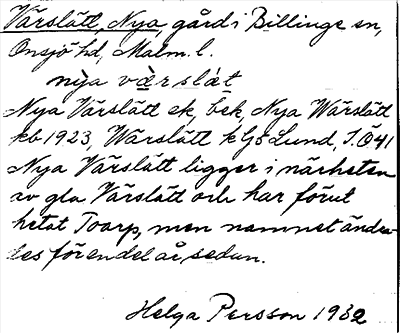 Värslätt, Nya, gård i Billinge sn,
Onsjö hd, Malm. l.
nỳa værslát
Nya Värslätt ek, bek, Nya Wärslätt
kb 1923, Wärslätt k Gs Lund, I.Ö41
Nya Värslätt ligger i närheten
av gla Värslätt och har förut
hetat Toarp, men namnet ändra-
des för en del år sedan.
Helga Persson 1932